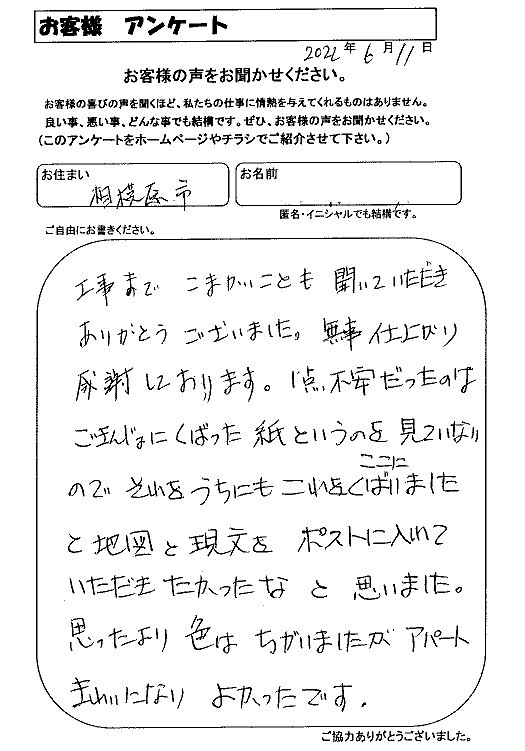 お客様 アンケート
2022年6月11日
お客様の声をお聞かせください。
お客様の喜びの声を聞くほど、私たちの仕事に情熱を与えてくれるものはありません。
良い事、悪い事、どんな事でも結構です。ぜひ、お客様の声をお聞かせください。
(このアンケートをホームページやチラシでご紹介させて下さい。)
お住まい
相模原市
お名前
匿名・イニシャルでも結構です。
ご自由にお書きください。
工事まで こまかいことも 聞いていただき
ありがとう ございました。無事 仕上がり
感謝しております。1点、不安だったのは
ごきんじょにくばった 紙というのを 見ていない
ので それを うちにも これを ここに くばりました
と 地図 と 現文を ポストに入れて
いただき たかったな と 思いました。
思ったより 色は ちがいましたが アパート
きれいになり よかったです。
ご協力ありがとうございました。